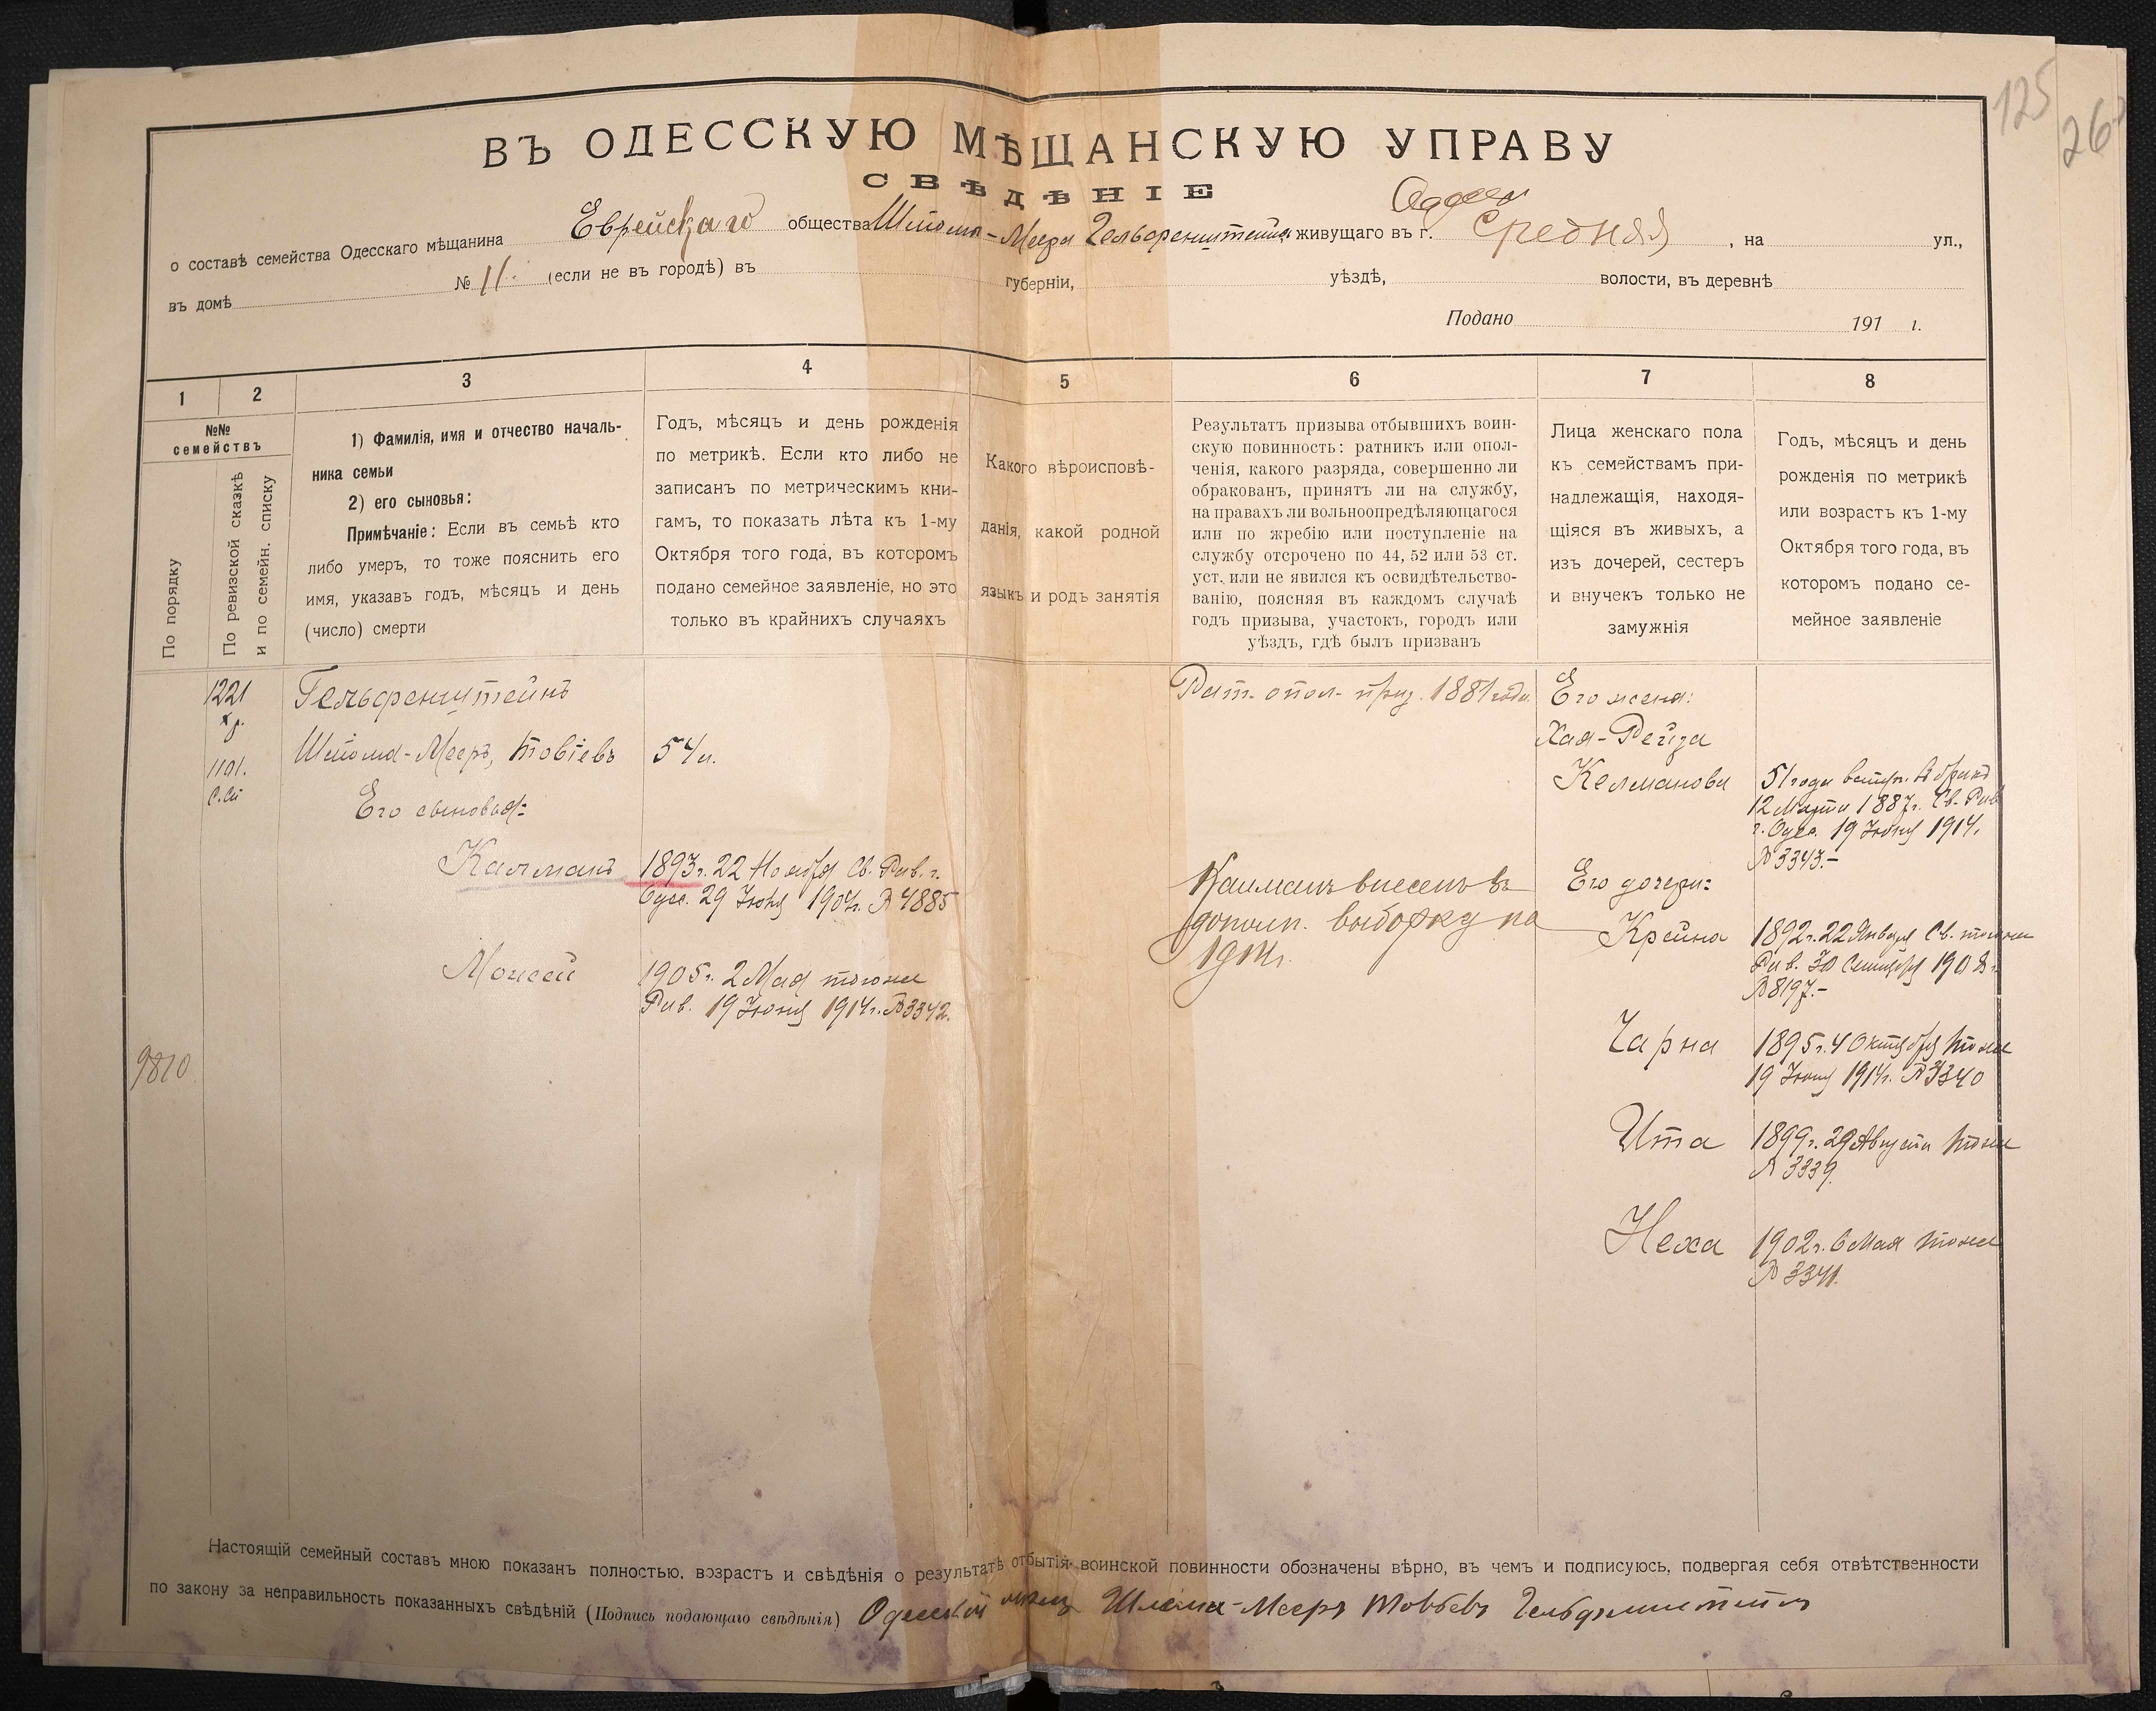 125
26
ВЪ ОДЕССКУЮ МѢЩАНСКУЮ УПРАВУ
СВѢДѢНІЕ
о составѣ семейства Одесскаго мѣщанина Еврейскаго общества Шлома-Меера Гельфенштейна живущаго въ г. Одесса Средняя, на ул.,
въ домѣ № 11. (если не въ городѣ) въ губерніи, уѣздѣ, волости, въ деревнѣ
Подано 191 г.
1 2 3 4 5 6 7 8
№№ семействъ
По порядку
По ревизской сказкѣ
и по семейн. списку
1) Фамилія, имя и отчество началь-
ника семьи
2) его сыновья:
Примѣчаніе: Если въ семьѣ кто
либо умеръ, то тоже пояснить его
имя, указавъ годъ, мѣсяцъ и день
(число) смерти
Годъ, мѣсяцъ и день рожденія
по метрикѣ. Если кто либо не
записанъ по метрическимъ кни-
гамъ, то показать лѣта къ 1-му
Октября того года, въ которомъ
подано семейное заявленіе, но это
только въ крайнихъ случаяхъ
Какого вѣроисповѣ-
данія, какой родной
языкъ и родъ занятія
Результатъ призыва отбывшихъ воин-
скую повинность: ратникъ или опол-
ченія, какого разряда, совершенно ли
обракованъ, принятъ ли на службу,
на правахъ ли вольноопредѣляющагося
или по жребію или поступленіе на
службу отсрочено по 44, 52 или 53 ст.
уст. или не явился къ освидѣтельство-
ванію, поясняя въ каждомъ случаѣ
годъ призыва, участокъ, городъ или
уѣздъ, гдѣ былъ призванъ
Лица женскаго пола
къ семействамъ при-
надлежащія, находя-
щіяся въ живыхъ, а
изъ дочерей, сестеръ
и внучекъ только не
замужнія
Годъ, мѣсяцъ и день
рожденія по метрикѣ
или возрастъ къ 1-му
Октября того года, въ
которомъ подано се-
мейное заявленіе
1221
1101.
Гельфенштейнъ
Шлома-Мееръ, Товіевъ
54 л.
Его сыновья:
Калманъ
1893 г. 22 Ноября Св. Рав. г.
Одес. 29 Іюня 1904 г. № 4885
Моисей
1905 г. 2 Мая тогоже
Рав. 19 Іюня 1914 г. № 3342.
9810
Рат. опол. приз. 1881 года.
Калманъ внесенъ въ
дополн. выборку на
1914 г.
Его жена:
Хая-Рейза
Келманова
51 года вступ. въ бракъ
12 Марта 1887 г. Св. Рав.
г. Одес. 19 Іюня 1914.
№ 3343.-
Его дочери:
Крейна
1892 г. 22 Января Св. тогоже
Рав. 30 Сентября 1908 г.
№ 8197.-
Чарна
1895 г. 4 Октября тоже
19 Іюня 1914 г. № 3340
Ита
1899 г. 29 Августа тоже
№ 3339.
Неха
1902 г. 6 Мая тоже
№ 3341.
Настоящій семейный составъ мною показанъ полностью, возрастъ и свѣдѣнія о результатѣ отбытія воинской повинности обозначены вѣрно, въ чемъ и подписуюсь, подвергая себя отвѣтственности
по закону за неправильность показанныхъ свѣдѣній (Подпись подающаго свѣдѣнія) Одесскій мѣщ. Шлема-Мееръ Товбевъ Гельфенштейнъ